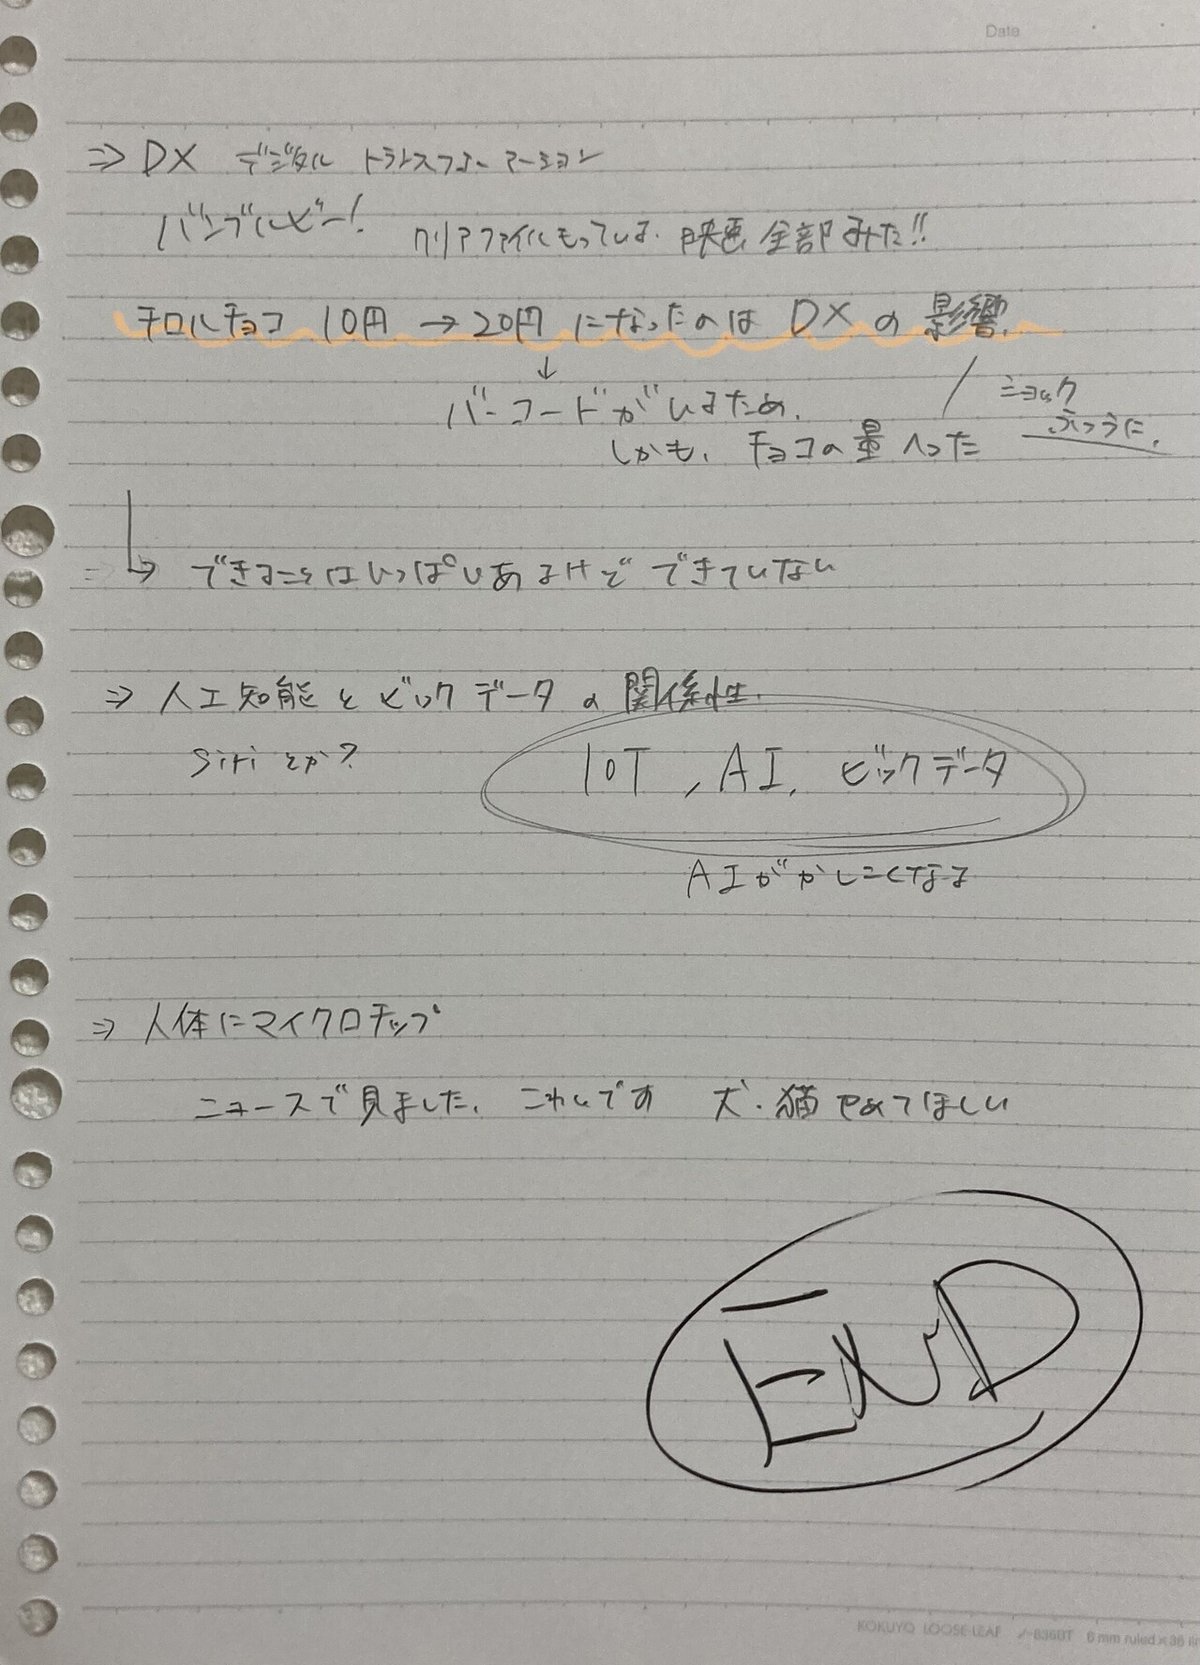 Date
⇒ DX デジタル トランスフォーマーション
バンブルビー! クリアファイルもっている。映画 全部みた!!
チロルチョコ 10円 → 20円 になったのは DX の 影響
↓
バーコードがいるため。 / ショック
しかも、チョコの量へった ふつうに。
↳ できることはいっぱいあるけど できていない
⇒ 人工知能とビックデータの関係性。
Siriとか?
IoT , AI, ビックデータ
AIがかしこくなる
⇒ 人体にマイクロチップ
ニュースで見ました。こわいです 犬・猫やめてほしい
END
KOKUYO LOOSE-LEAF ノ-836BT 6 mm ruled×36 lin